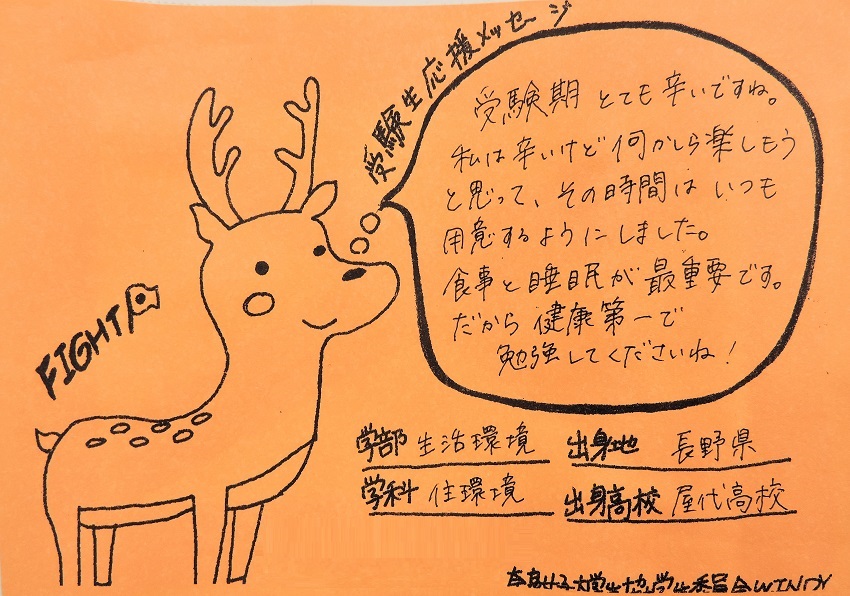 受験生応援メッセージ
受験期 とても辛いですね。
私は辛いけど何かしら楽しもう
と思って、その時間はいつも
用意するようにしました。
食事と睡眠が最重要です。
だから健康第一で
勉強してくださいね!
FIGHT
学部 生活環境
出身地 長野県
学科 住環境
出身高校 屋代高校
奈良女子大学生協学生委員会WINDY